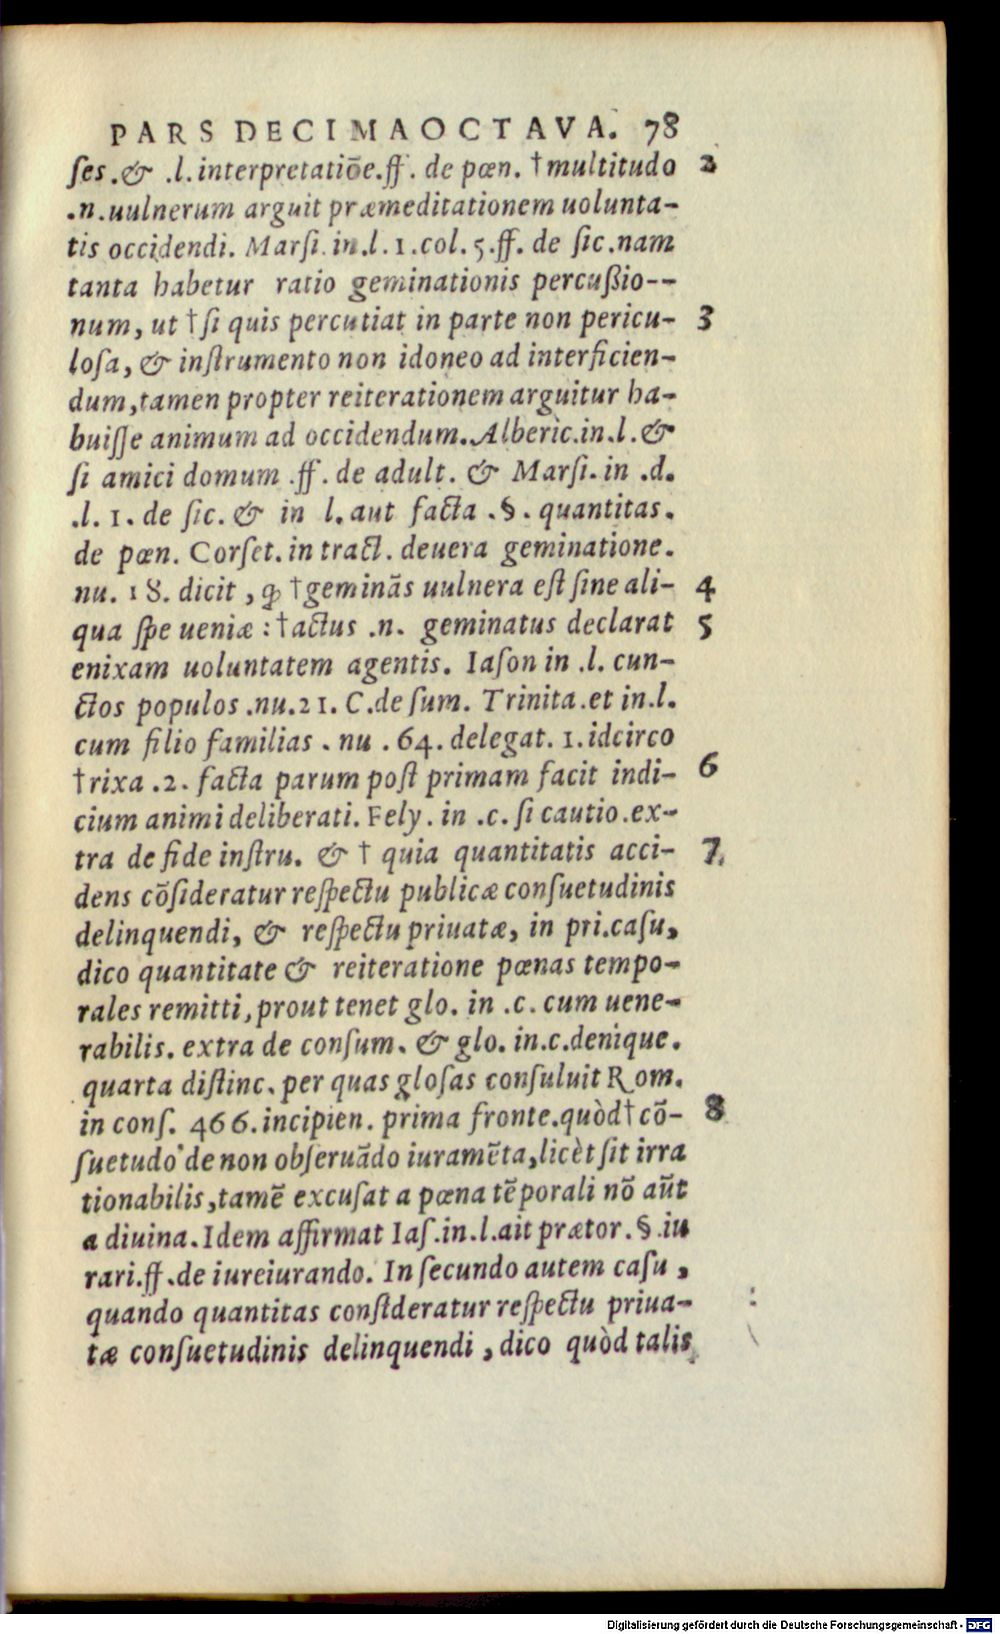 PARS DECIMAOCTAVA. 78
ſes .& .l. interpretatiōe.ff. de pœn. †multitudo 2
.n. uulnerum arguit præmeditationem uolunta-
tis occidendi. Marſi. in .l. 1. col. 5. ff. de ſic. nam
tanta habetur ratio geminationis percußio--
num, ut †ſi quis percutiat in parte non pericu- 3
loſa, & inſtrumento non idoneo ad interficien-
dum, tamen propter reiterationem arguitur ha-
buiſſe animum ad occidendum. Alberic. in .l. &
ſi amici domum .ff. de adult. & Marſi. in .d.
.l. 1. de ſic. & in l. aut facta .§. quantitas.
de pœn. Corſet. in tract. deuera geminatione.
nu. 18. dicit , ꝙ †geminās uulnera eſt ſine ali- 4
qua ſpe ueniæ : †actus .n. geminatus declarat 5
enixam uoluntatem agentis. Iaſon in .l. cun-
ctos populos .nu.21. C.de ſum. Trinita. et in.l.
cum filio familias . nu . 64. delegat. 1. idcirco
†rixa .2. facta parum poſt primam facit indi- 6
cium animi deliberati. Fely. in .c. ſi cautio .ex-
tra de fide inſtru. & † quia quantitatis acci- 7
dens cōſideratur reſpectu publicæ conſuetudinis
delinquendi, & reſpectu priuatæ, in pri.caſu,
dico quantitate & reiteratione pœnas tempo-
rales remitti, prout tenet glo. in .c. cum uene-
rabilis. extra de conſum. & glo. in.c.denique.
quarta diſtinc. per quas gloſas conſuluit Rom.
in conſ. 466. incipien. prima fronte. quòd† cō- 8
ſuetudo de non obſeruādo iuramēta, licèt ſit irra
tionabilis, tamē excuſat a pœna tēporali nō aūt
a diuina. Idem affirmat Iaſ. in.l. ait prætor. §. iu
rari. ff. de iureiurando. In ſecundo autem caſu ,
quando quantitas conſideratur reſpectu priua-
tæ conſuetudinis delinquendi , dico quòd talis
Digitalisierung gefördert durch die Deutsche Forschungsgemeinschaft - DFG